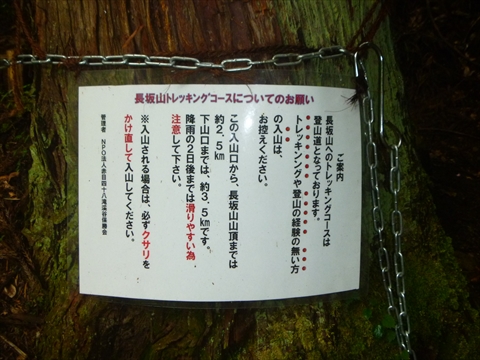 長坂山トレッキングコースについてのお願い
ご案内
長坂山へのトレッキングコースは
登山道となっております。
トレッキンングや登山の経験の無い方
の入山は、
お控えください。
この入山口から、長坂山山頂までは
約2.5km
下山口までは、約3.5kmです。
降雨の2日後までは滑りやすい為、
注意して下さい。
※入山される場合は、必ずクサリを
かけ直して入山してください。
管理者 NPO法人赤目四十八滝渓谷保勝会